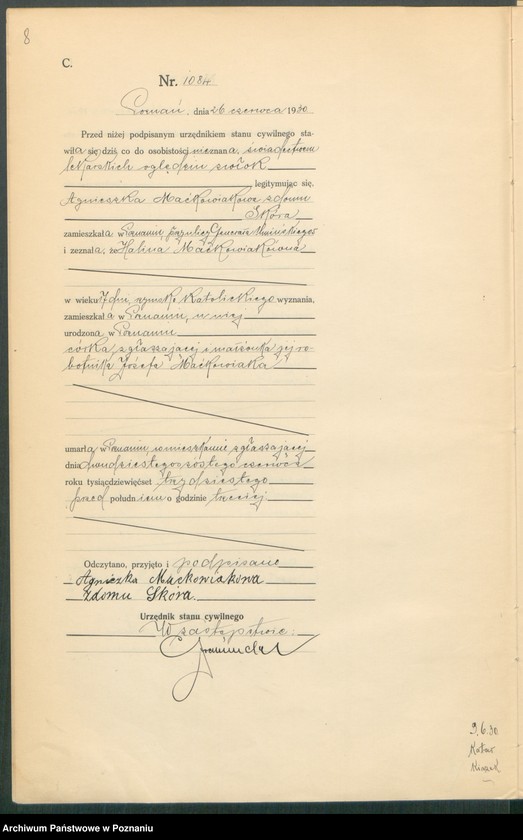 8
C.
Nr. 1084
Poznań, dnia 26 czerwca 1930
Przed niżej podpisanym urzędnikiem stanu cywilnego sta-
wiła się dziś, co do osobistości nieznana, świadectwem
lekarskich oględzin zwłok
legitymując się,
Agnieszka Maćkowiakowa z domu
Skóra
zamieszkała w Poznaniu, przy ulicy Generała
i zeznała, że Halina Maćkowiakówna
w wieku 7 dni, rzymsko katolickiego wyznania,
zamieszkała w Poznaniu, u niej
urodzona w Poznaniu
córka zgłaszającej i małżonka jej ro-
botnika Józefa Maćkowiaka
umarła w Poznaniu, w mieszkaniu zgłaszającej
dnia dwudziestego szóstego czerwca
roku tysiącdziewięćset trzydziestego
przed południem o godzinie trzeciej
Odczytano, przyjęto i podpisano
Agnieżka Maćkowiakowa
z domu Skóra.
Urzędnik stanu cywilnego
W zastępstwie:
9.6.30
Archiwum Państwowe w Poznaniu